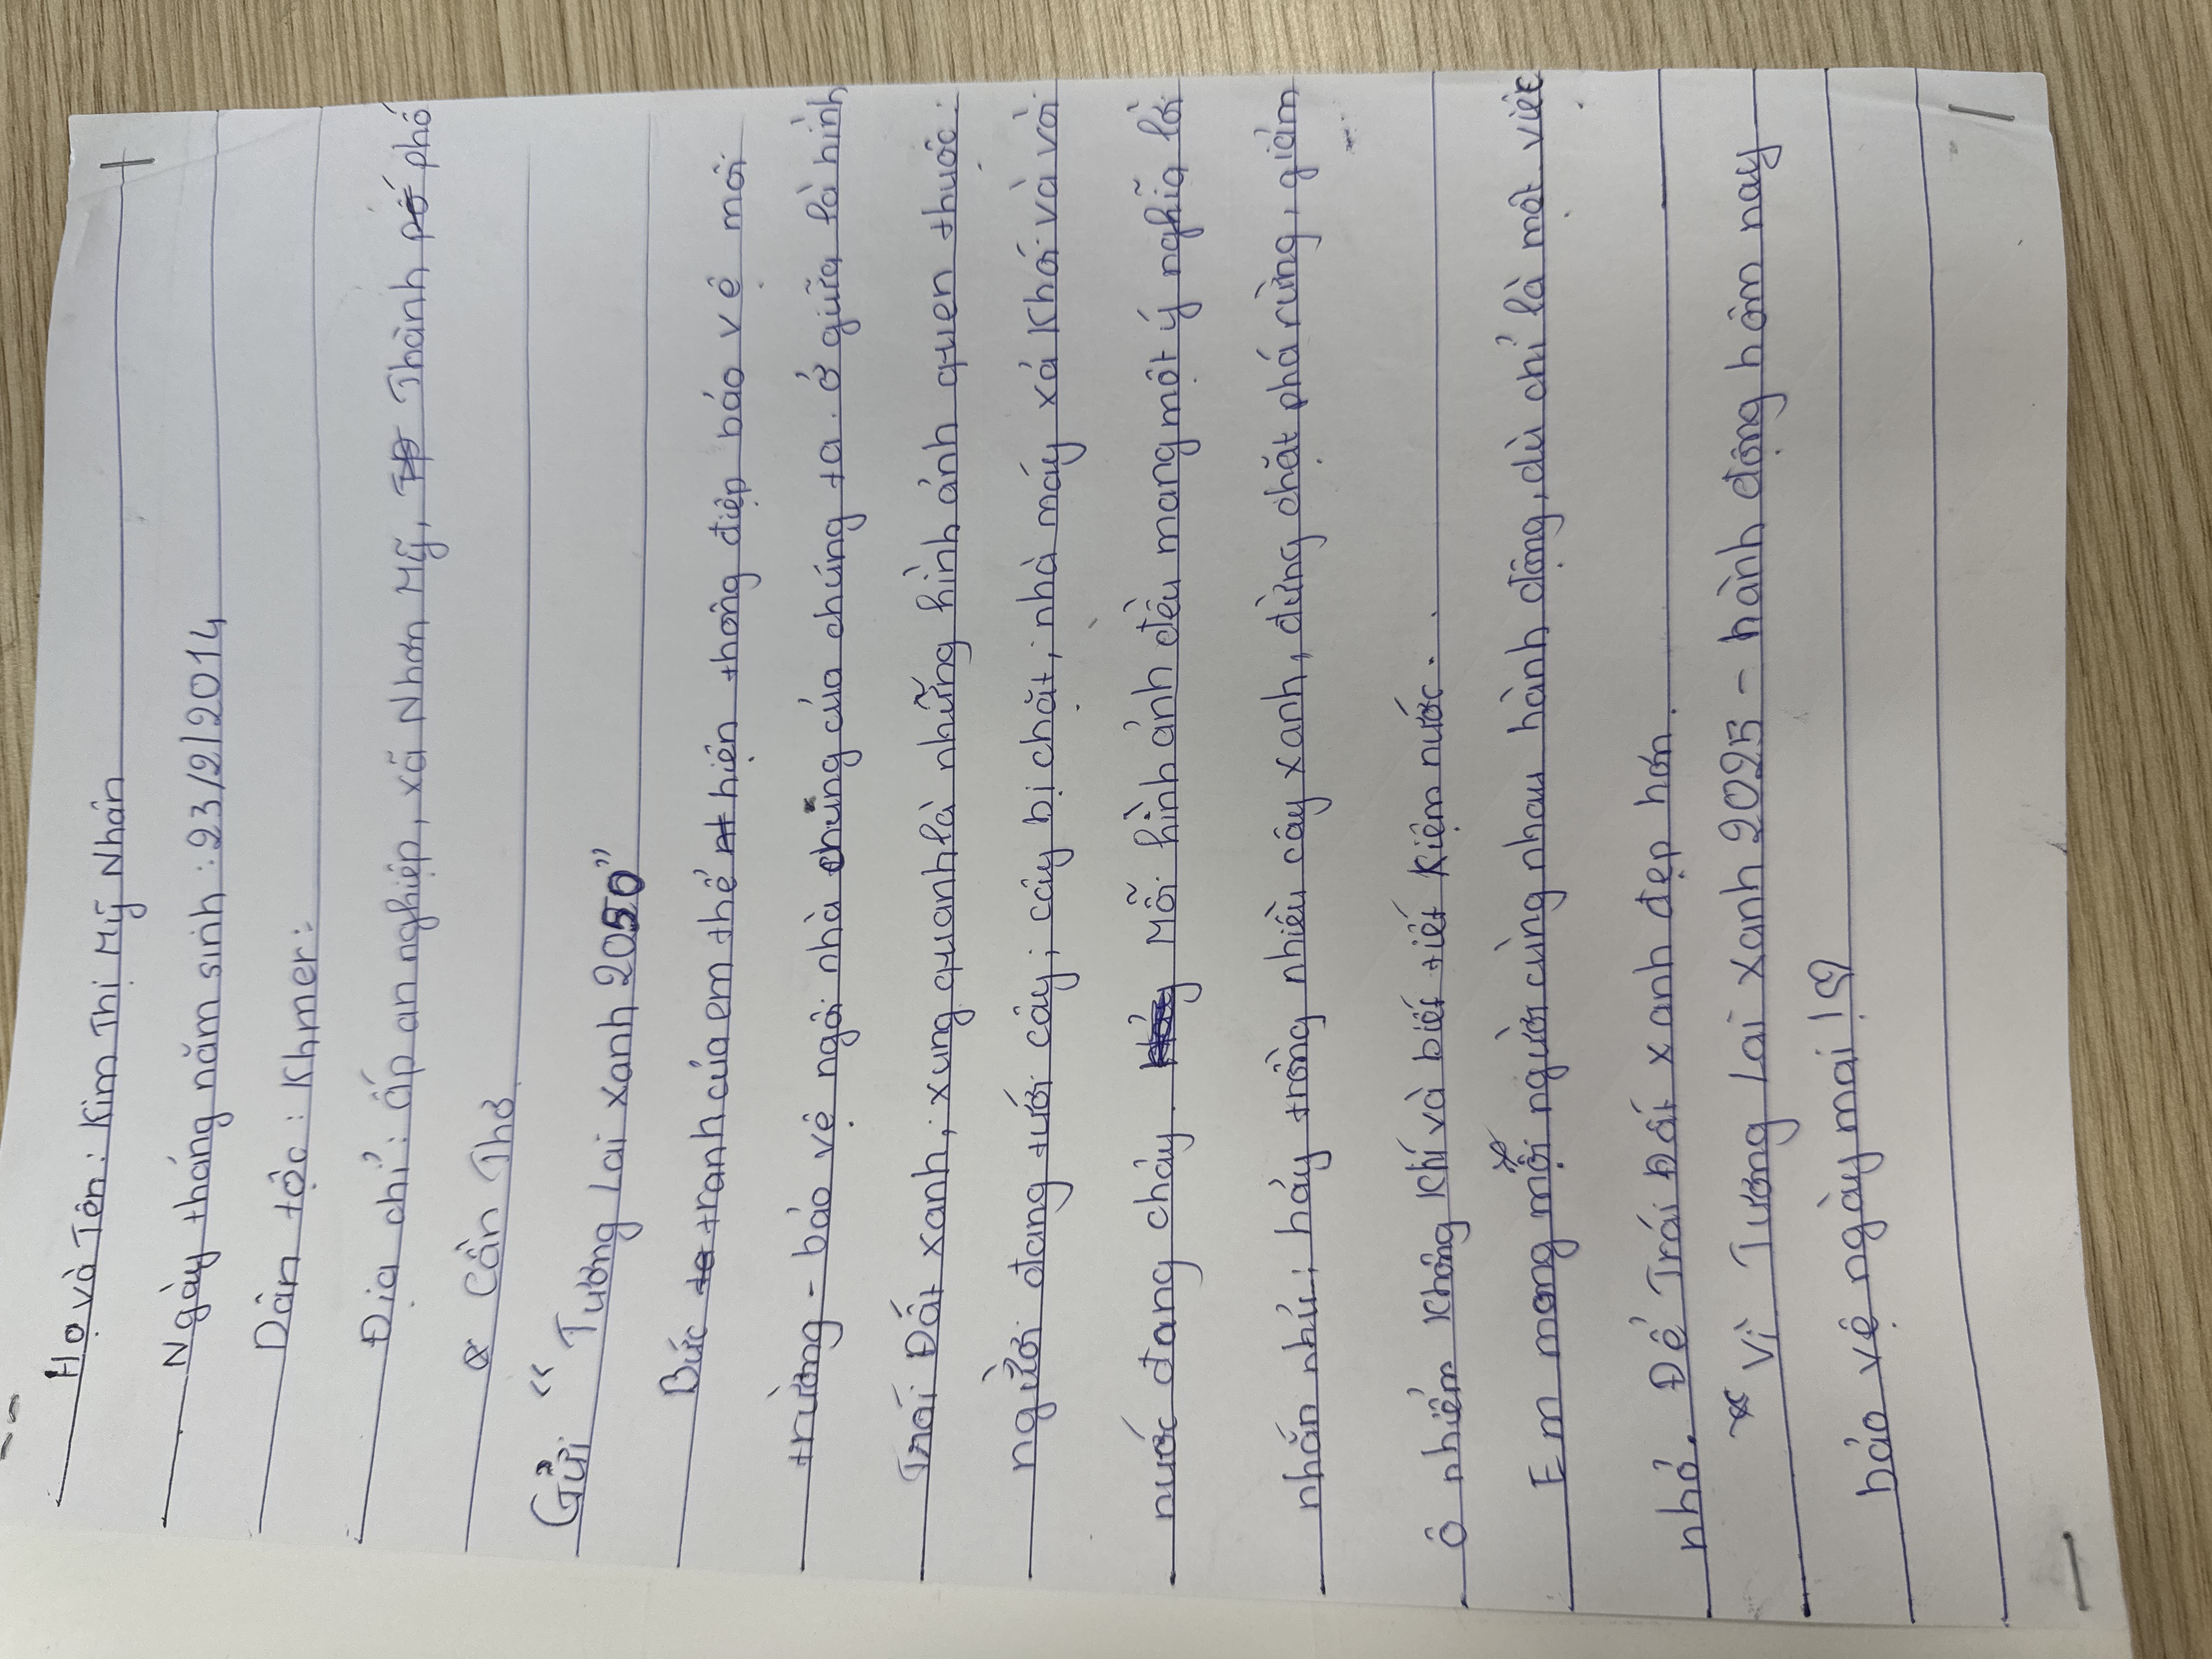 Họ và Tên: Kim Thị Mỹ Nhân
Ngày tháng năm sinh: 23/2/2014
Dân tộc: Khmer:
Địa chỉ: ấp an nghiệp, xã Nhơn Mỹ, Thành phố
Cần Thơ
Gửi "Tương Lai Xanh 2050"
Bức tranh của em thể hiện thông điệp bảo vệ môi
trường - bảo vệ ngôi nhà chung của chúng ta. ở giữa là hình
Trái Đất xanh, xung quanh là những hình ảnh quen thuộc:
người đang tưới cây; cây bị chặt, nhà máy xả khói và vòi
nước đang chảy. Mỗi hình ảnh đều mang một ý nghĩa lời
nhắn nhủ: hãy trồng nhiều cây xanh, đừng chặt phá rừng, giảm
ô nhiễm không khí và biết tiết kiệm nước.
Em mong mỗi người cùng nhau hành động, dù chỉ là một việc
nhỏ. Để Trái Đất xanh đẹp hơn.
* Vì Tương Lai Xanh 2025 - hành động hôm nay
bảo vệ ngày mai!♡